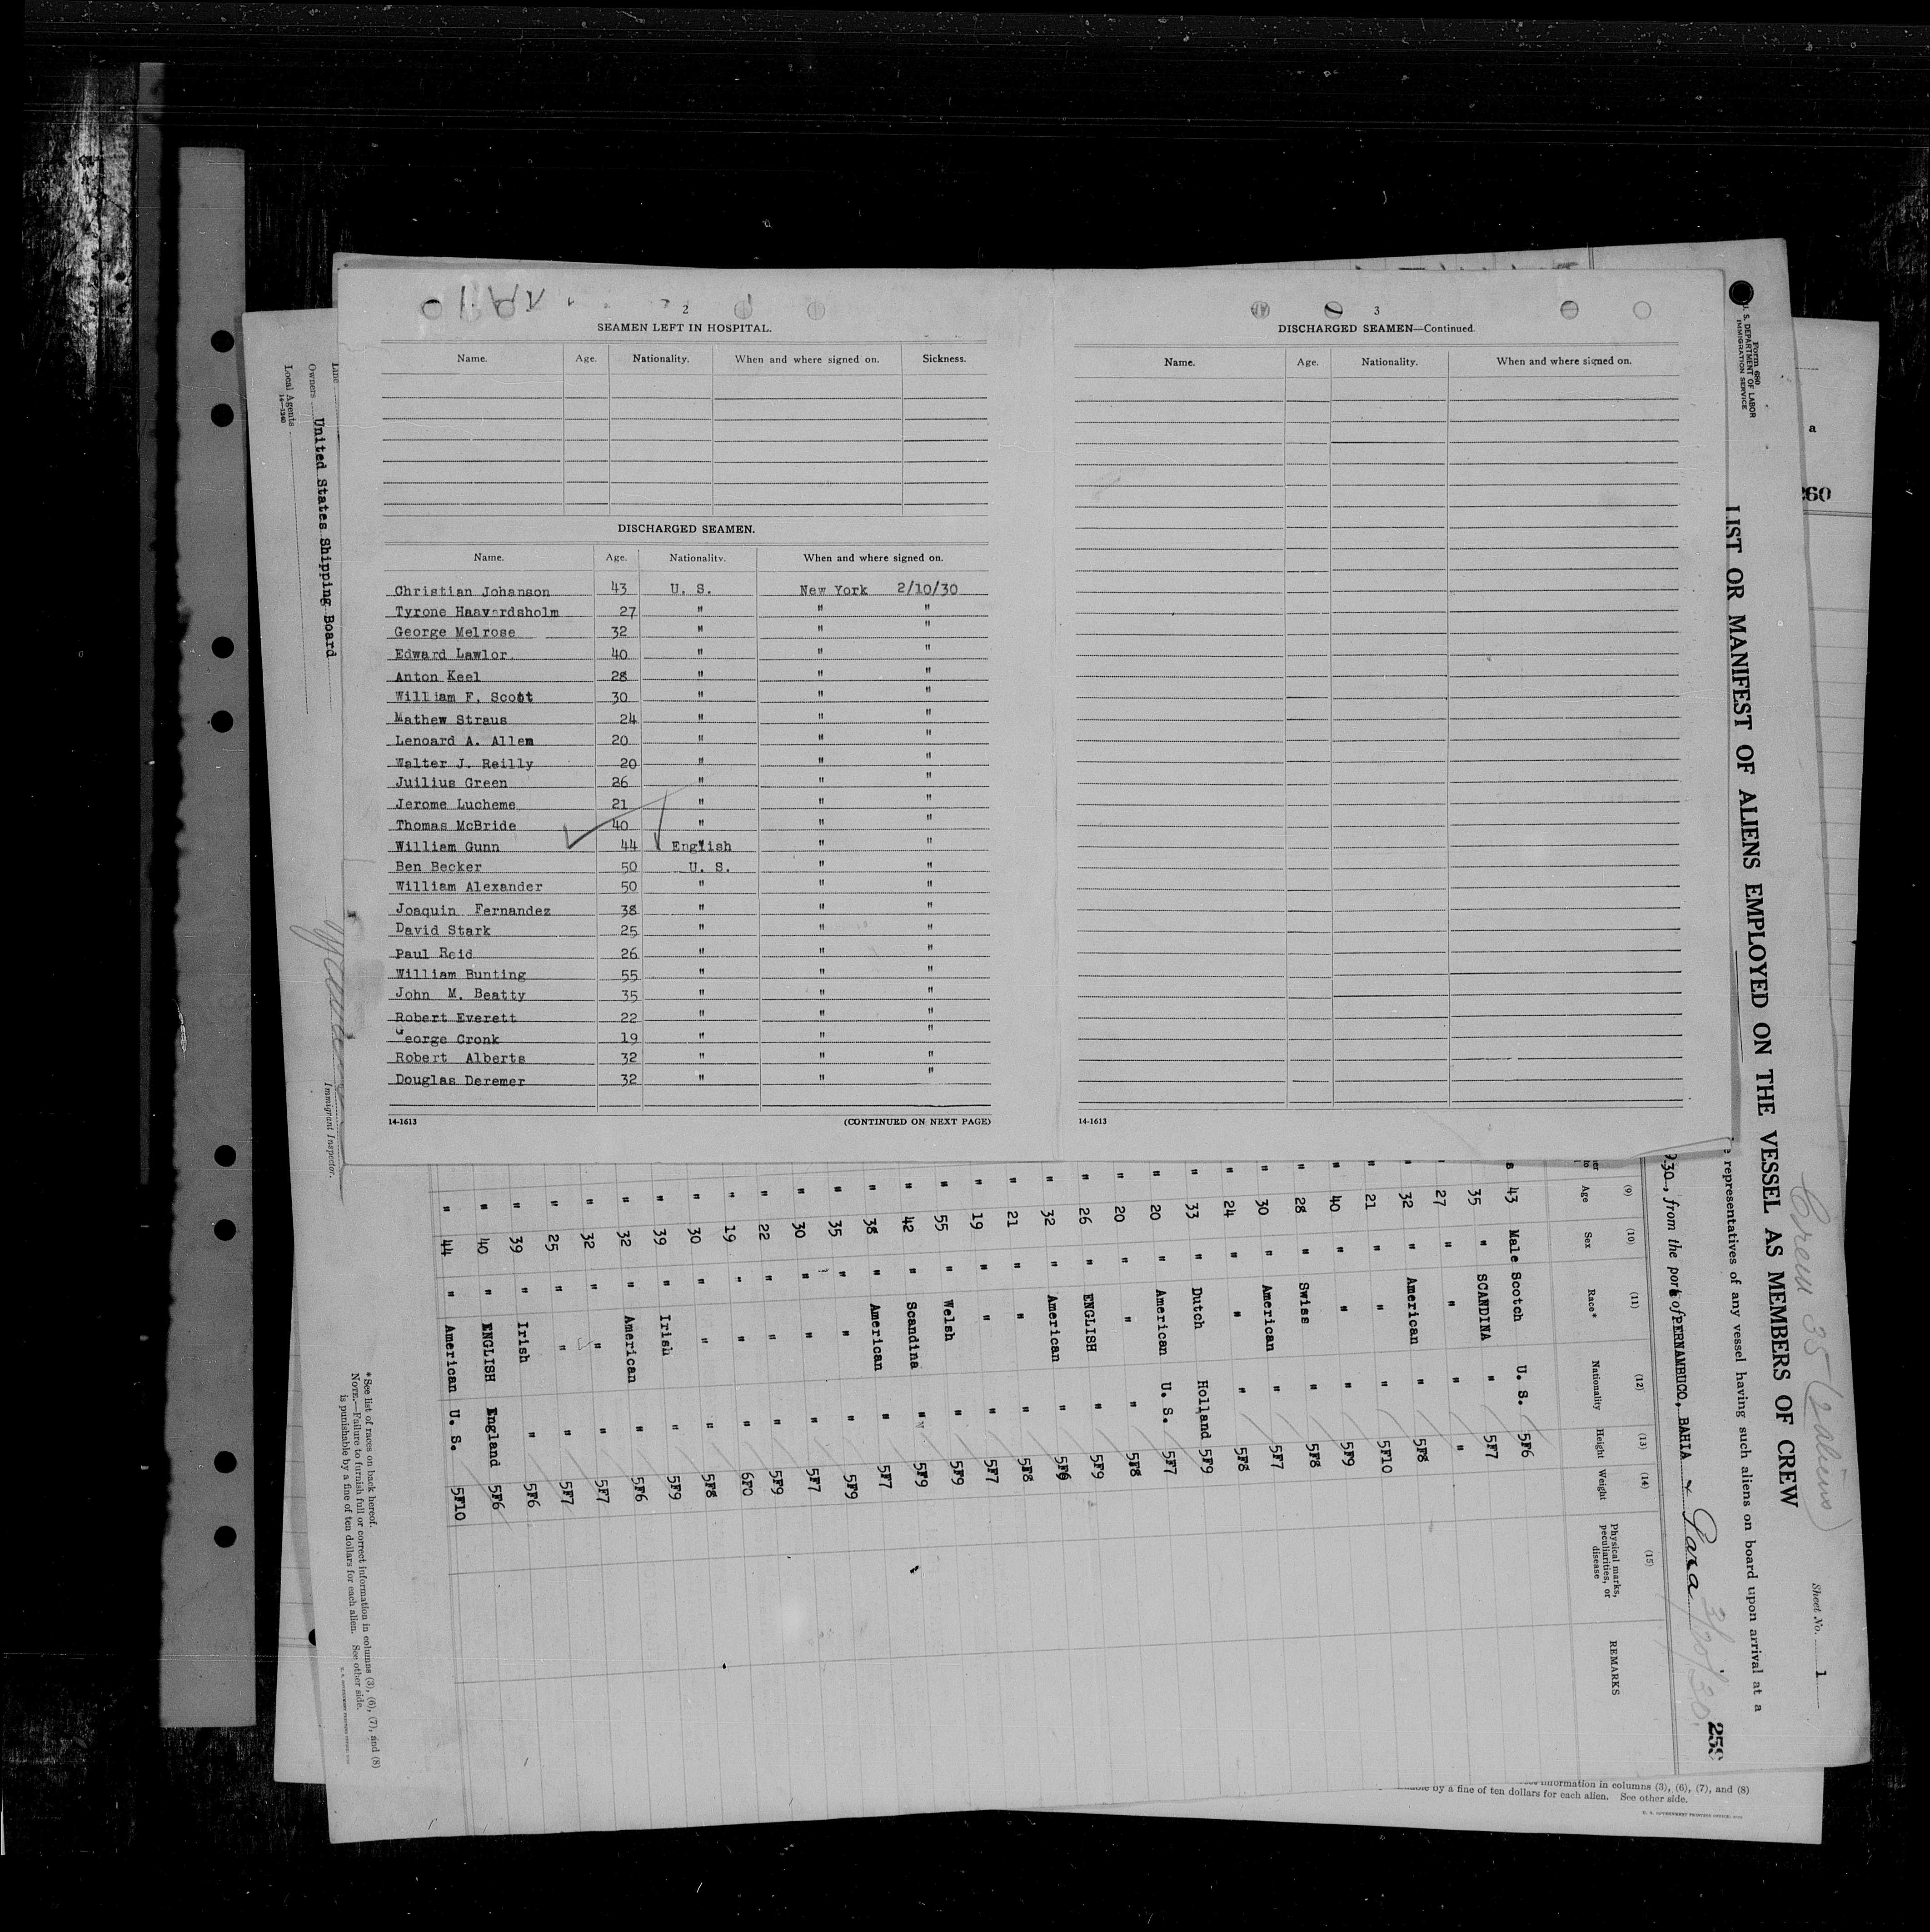 2
SEAMEN LEFT IN HOSPITAL.
Name. Age. Nationality. When and where signed on. Sickness.
DISCHARGED SEAMEN.
Name. Age. Nationality. When and where signed on.
Christian Johanson 43 U. S. New York 2/10/30
Tyrone Haavardsholm 27 " " "
George Melrose 32 " " "
Edward Lawlor 40 " " "
Anton Keel 28 " " "
William F. Scott 30 " " "
Mathew Straus 24 " " "
Lenoard A. Allen 20 " " "
Walter J. Reilly 20 " " "
Juilius Green 26 " " "
Jerome Lucheme 21 " " "
Thomas McBride 40 " " "
William Gunn 44 English " "
Ben Becker 50 U. S. " "
William Alexander 50 " " "
Joaquin Fernandez 38 " " "
David Stark 25 " " "
Paul Reid 26 " " "
William Bunting 55 " " "
John M. Beatty 35 " " "
Robert Everett 22 " " "
George Cronk 19 " " "
Robert Alberts 32 " " "
Douglas Deremer 32 " "  "
14-1613 (CONTINUED ON NEXT PAGE)
3
DISCHARGED SEAMEN—Continued.
Name. Age. Nationality. When and where signed on.
14-1613
Form 680
U. S. DEPARTMENT OF LABOR
IMMIGRATION SERVICE
a
260
Crew 35 (2 aliens)
Sheet No. 1
LIST OR MANIFEST OF ALIENS EMPLOYED ON THE VESSEL AS MEMBERS OF CREW
representatives of any vessel having such aliens on board upon arrival at a
259
30, from the port of PERNAMBUCO, BAHIA & Para 3/20/30
(9) (10) (11) (12) (13) (14) (15)
Age Sex Race* Nationality Height Weight Physical marks, peculiarities, or disease REMARKS
43 Male Scotch U. S. 5F6
" 35 " SCANDINA " 5F7
" 27 " " " "
" 32 " American " 5F8
" 21 " " " 5F10
" 40 " " " 5F9
" 28 " Swiss " 5F8
" 30 " American " 5F7
" 24 " " " 5F8
" 33 " Dutch Holland 5F9
" 20 " American U. S. 5F7
" 20 " " " 5F8
" 26 " ENGLISH " 5F9
" 32 " American " 5F6
" 21 " " " 5F8
" 19 " " " 5F7
" 55 " Welsh " 5F9
" 42 " Scandina " 5F9
" 38 " American " 5F7
" 35 " " " 5F9
" 30 " " " 5F7
" 22 " " " 5F9
" 19 " " " 6F0
" 30 " " " 5F8
" 39 " Irish " 5F9
" 32 " American " 5F6
" 32 " " " 5F7
" 25 " " " 5F7
" 39 " Irish " 5F6
" 40 " ENGLISH England 5F6
" 44 " American U. S. 5F10
* See list of races on back hereof.
NOTE.—Failure to furnish full or correct information in columns (3), (6), (7), and (8)
is punishable by a fine of ten dollars for each alien. See other side.
Line
Owners United States Shipping Board
Local Agents
14-1240
Immigrant Inspector.
information in columns (3), (6), (7), and (8)
by a fine of ten dollars for each alien. See other side.
U. S. GOVERNMENT PRINTING OFFICE